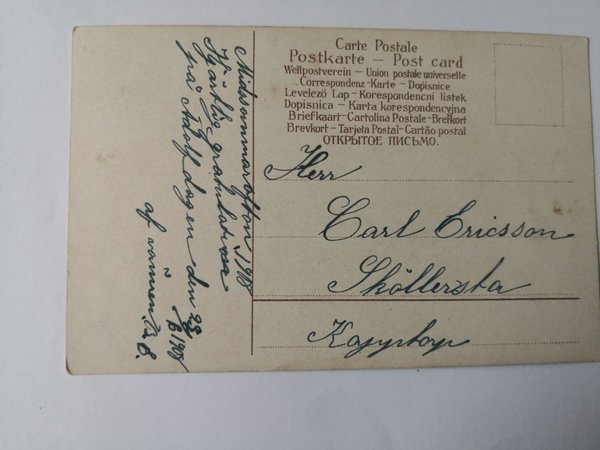 Carte Postale
Postkarte – Post card
Weltpostverein – Union postale universelle
Correspondenz-Karte – Dopisnice
Levelező Lap – Korespondencni listek
Dopisnica – Karta korespondencyjna
Briefkaart – Cartolina Postale – Brefkort
Brevkort – Tarjeta Postal – Cartão postal
ОТКРЫТОЕ ПИСЬМО.
Herr
Carl Ericsson
Sköllersta
Midsommarafton 1908
Hjärtlig gratulation
på Adolfdagen den 23/6 1908
af vännen